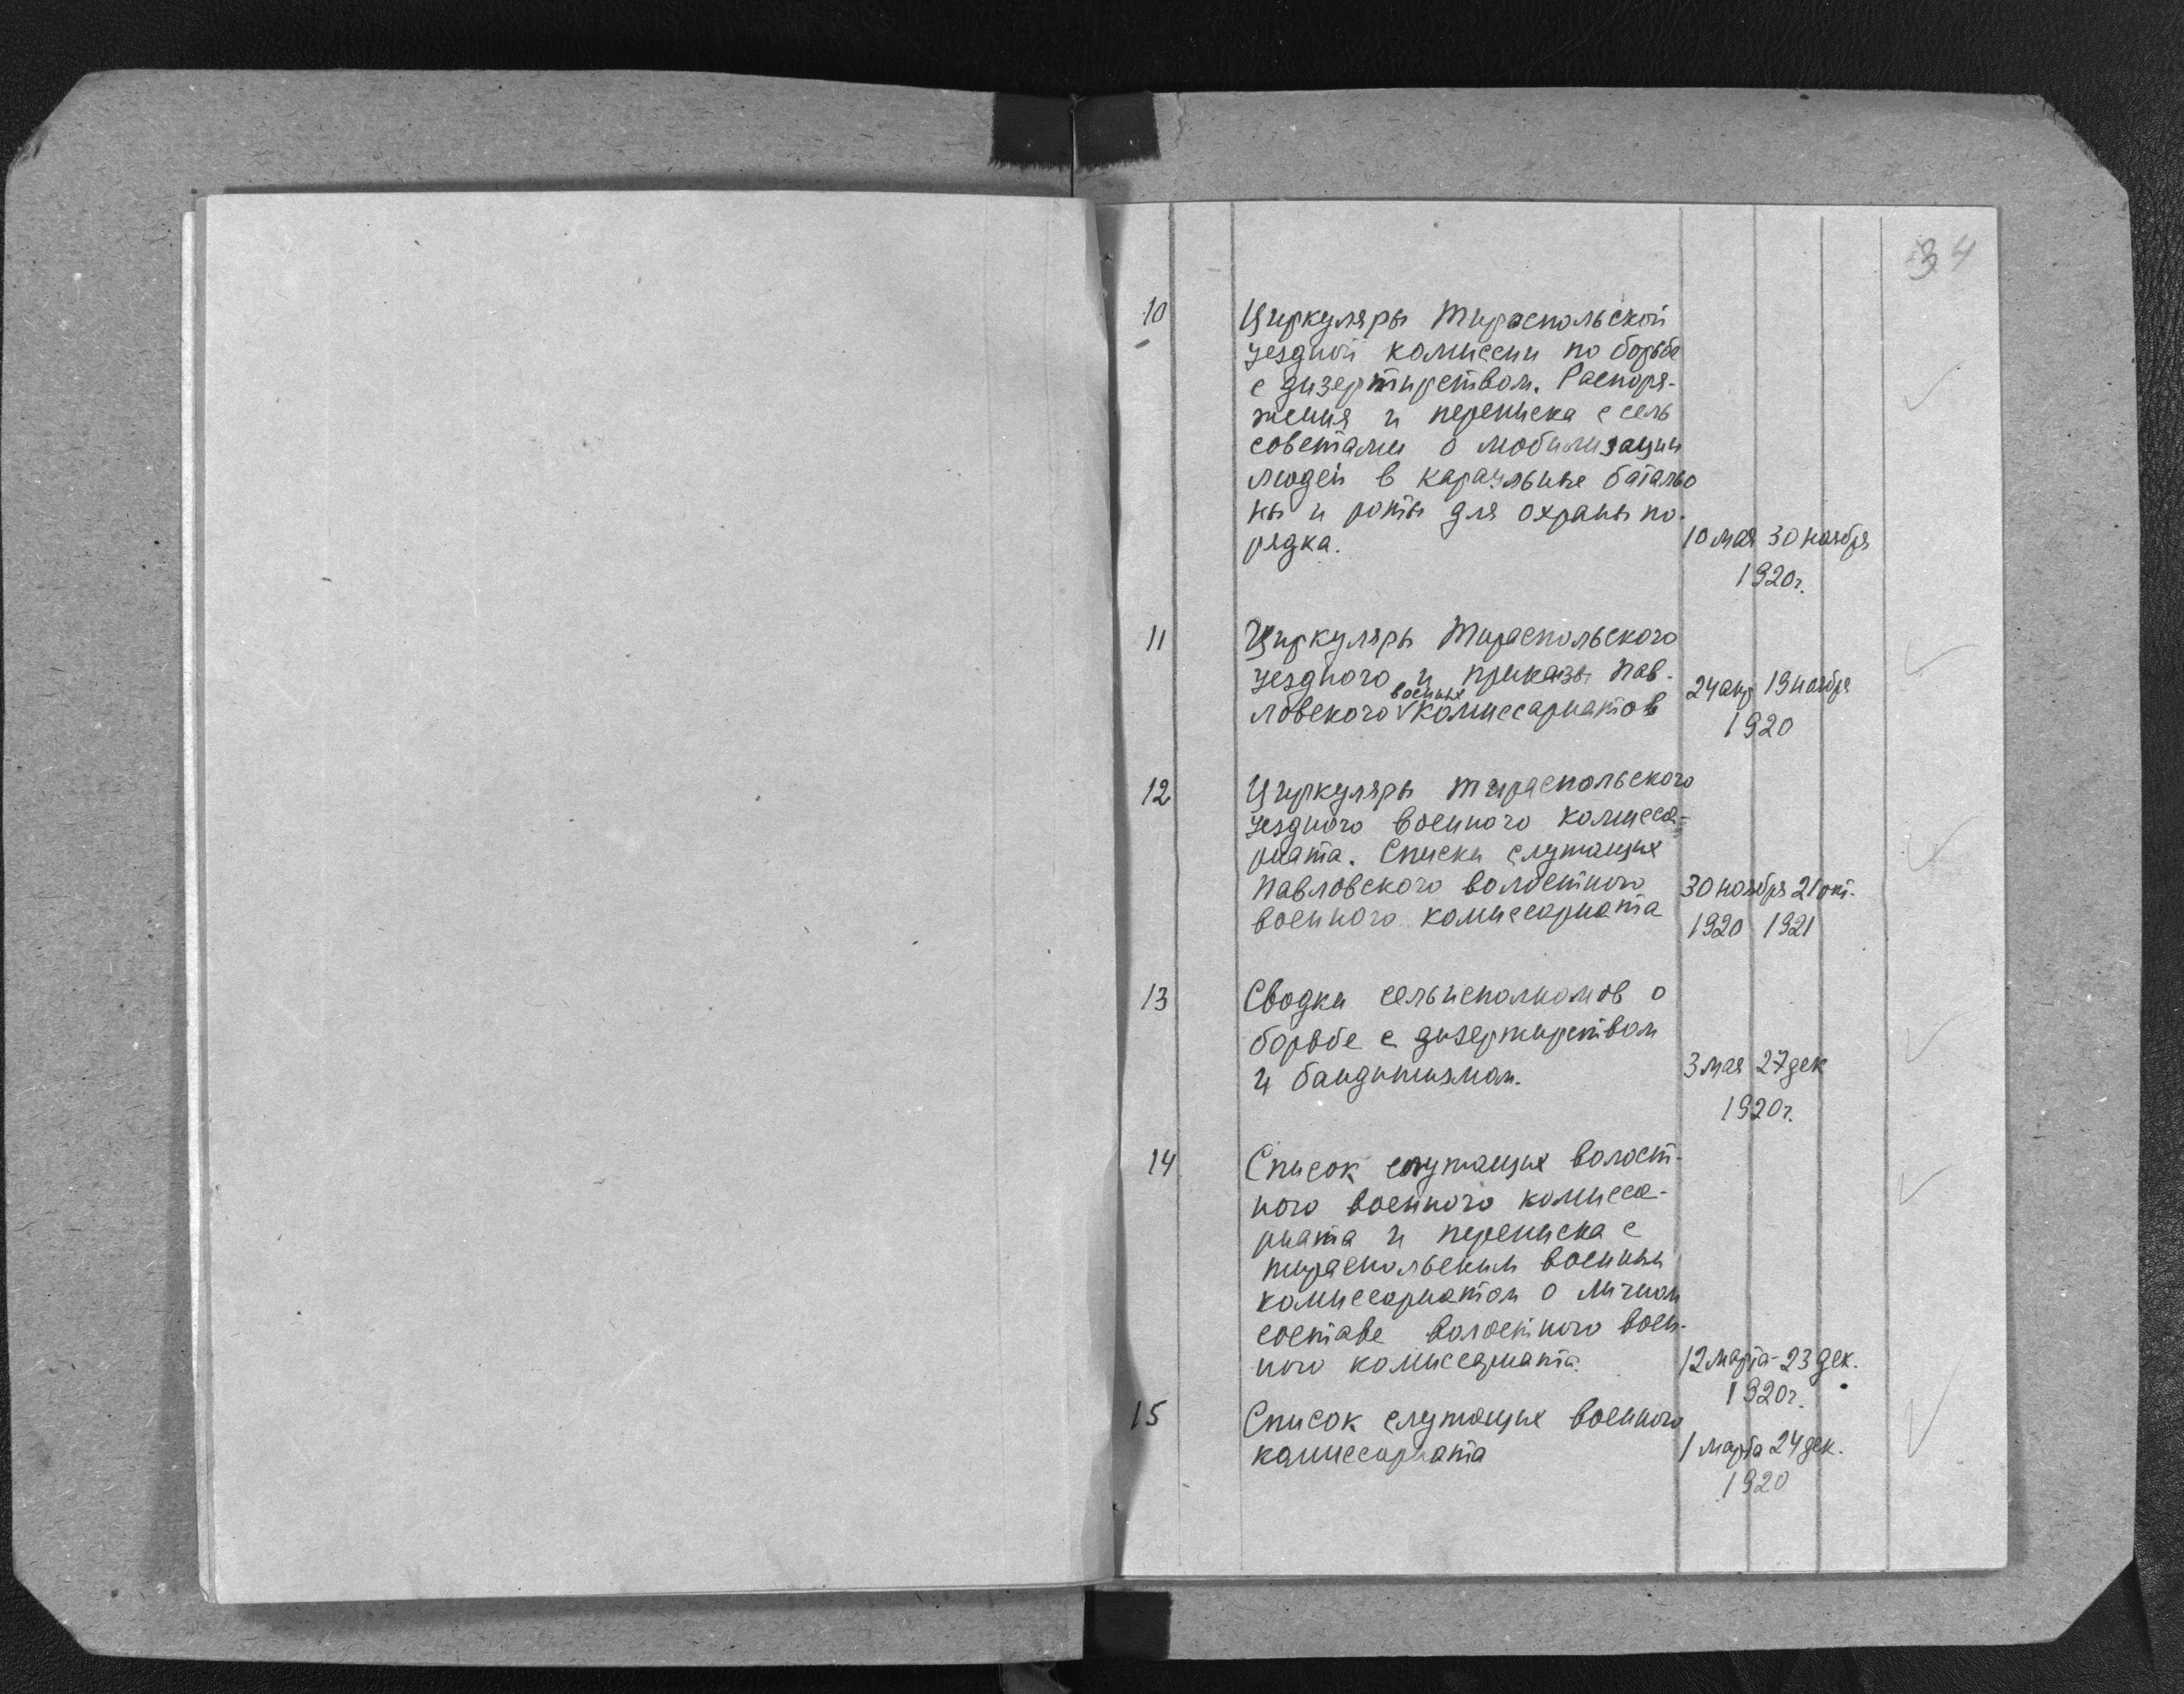 34
10 Циркуляры Тираспольской
уездной комиссии по борьбе
с дизертирством. Распоря-
жения и переписка с сель
советами о мобилизации
людей в караульные баталью
ны и роты для охраны по-
рядка. 10 мая 30 ноября
1920г.
11 Циркуляры Тираспольского
уездного и приказы Пав-
ловского военных комиссариатов 24 апр 19 ноября
1920
12 Циркуляры тираспольского
уездного военного комисса-
риата. Списки служащих
Павловского волостного 30 ноября 21 окт.
военного комиссариата 1920 1921
13 Сводки сельисполкомов о
борьбе с дизертирством
и бандитизмом. 3 мая 27 дек
1920г.
14 Список служащих волост-
ного военного комисса-
риата и переписка с
тираспольским военным
комиссариатом о личном
составе волостного воен-
ного комиссариата. 12 марта - 23 дек.
1920г.
15 Список служащих военного
комиссариата 1 марта 24 дек.
1920